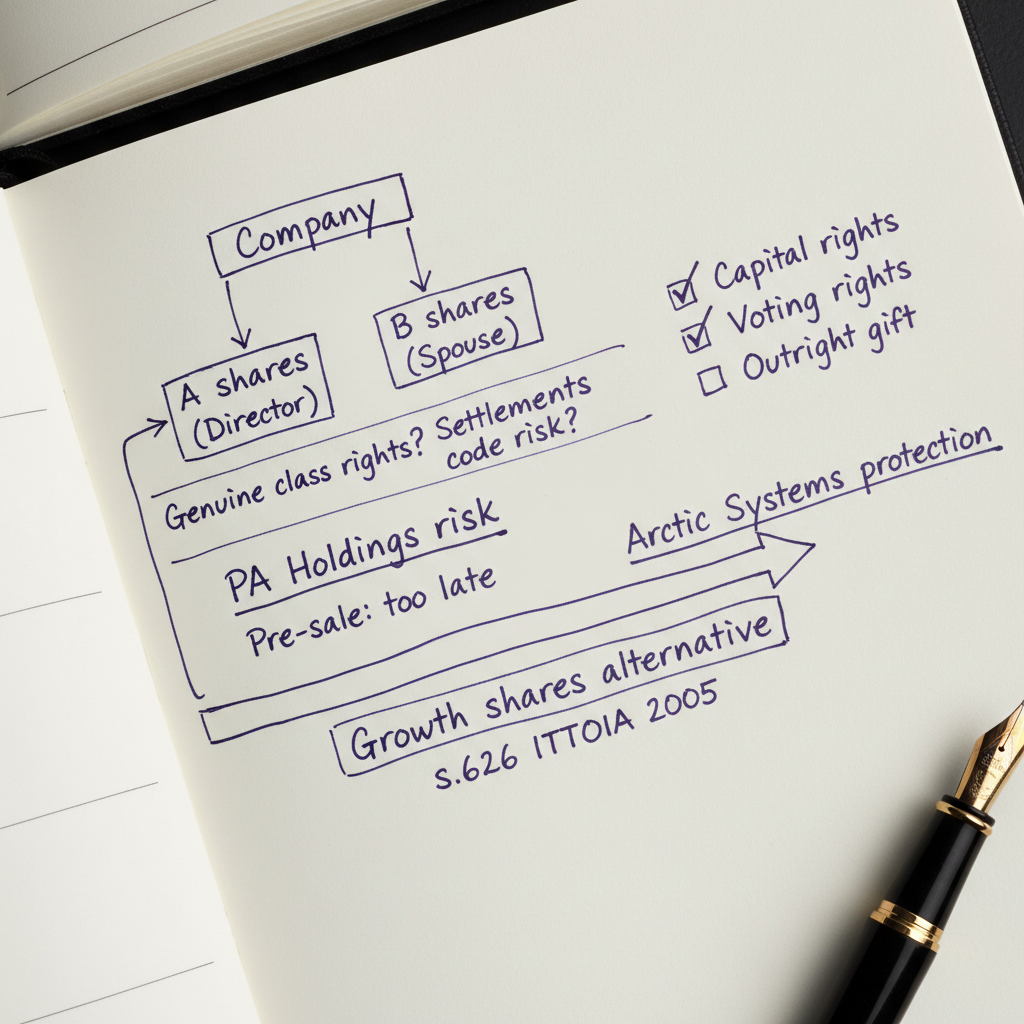 Company
A shares
(Director)
B shares
(Spouse)
Capital rights
Voting rights
Outright gift
Genuine class rights?
Settlements
code risk?
PA Holdings risk
Pre-sale: too late
Arctic Systems protection
Growth shares alternative
s.626 ITTOIA 2005